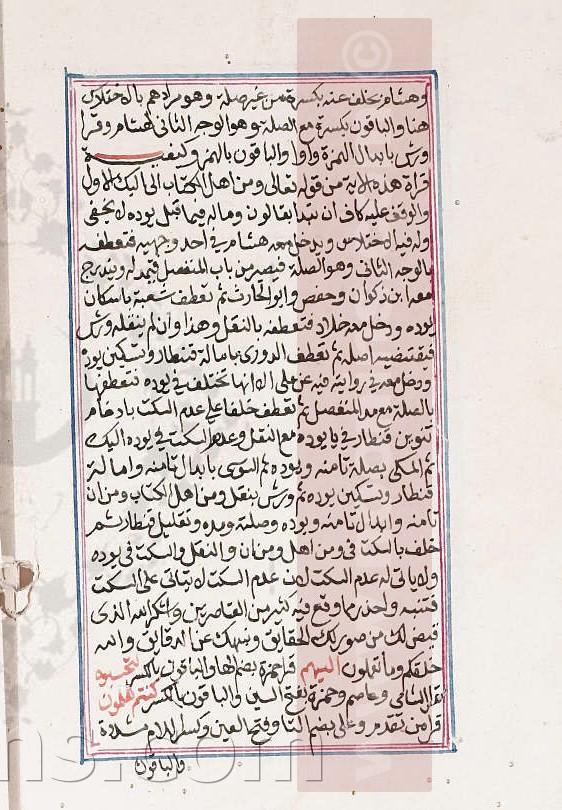 وهشام يختلف عنه بكسرة من غير صلة وهو مرادهم بالاختلاس
هنا والباقون بكسرة مع الصلة وهو الوجه الثاني لهشام وقرا
ورش بابدال الهمزة واوا والباقون بالهمز وكيفية
قراة هذه الاية من قوله تعالى ومن اهل الكتاب الى اليك الاول
والوقف عليه كاف ان تبدا بقالون وماله فيما قبل يوده لا يخفى
وله فيه الاختلاس ويدخل معه هشام في احد وجهيه فتعطفه
بالوجه الثاني وهو الصلة فيصير من باب المنفصل فيمد له ويندرج
معه ابن ذكوان وحفص وابو الحارث ثم تعطف شعبة باسكان
يوده ودخل معه خلاد فتعطفه بالنقل وهذا وان لم ينقله ورش
فيقتضيه اصله ثم تعطف الدوري بامالة قنطار وتسكين يوده
ودخل معه في رواية فيه عن علي الا انها تختلف في يوده فتعطفها
بالصلة مع مد المنفصل ثم تعطف خلفا على عدم السكت بادغام
تنوين قنطار في يا يوده مع النقل وعدم السكت في يوده اليك
ثم المكي بصلة تامنه ويوده ثم السوسي بابدال تامنه وامالة
قنطار وتسكين يوده ثم ورش بنقل ومن اهل الكتاب ومن ان
تامنه وابدال تامنه ويوده وصلته ومده وتقليل قنطار ثم
خلف بالسكت في ومن اهل ومن ان والنقل والسكت في يوده
ولا ياتي له عدم السكت لان عدم السكت لا يتاتى على السكت
فتنبه واحذر مما وقع فيه كثير من القاصرين واشكر الله الذي
قيض لك من صور لك الحقايق ونبهك عن الدقايق والله
خلقكم وما تعملون اليهم قرا حمزة بضم الها والباقون بالكسر لتحسبوه
قرا الشامي وعاصم وحمزة بفتح السين والباقون بالكسر كنتم تعلمون
قرا من تقدم وعلي بضم التا وفتح العين وكسر اللام مشددة
والباقون